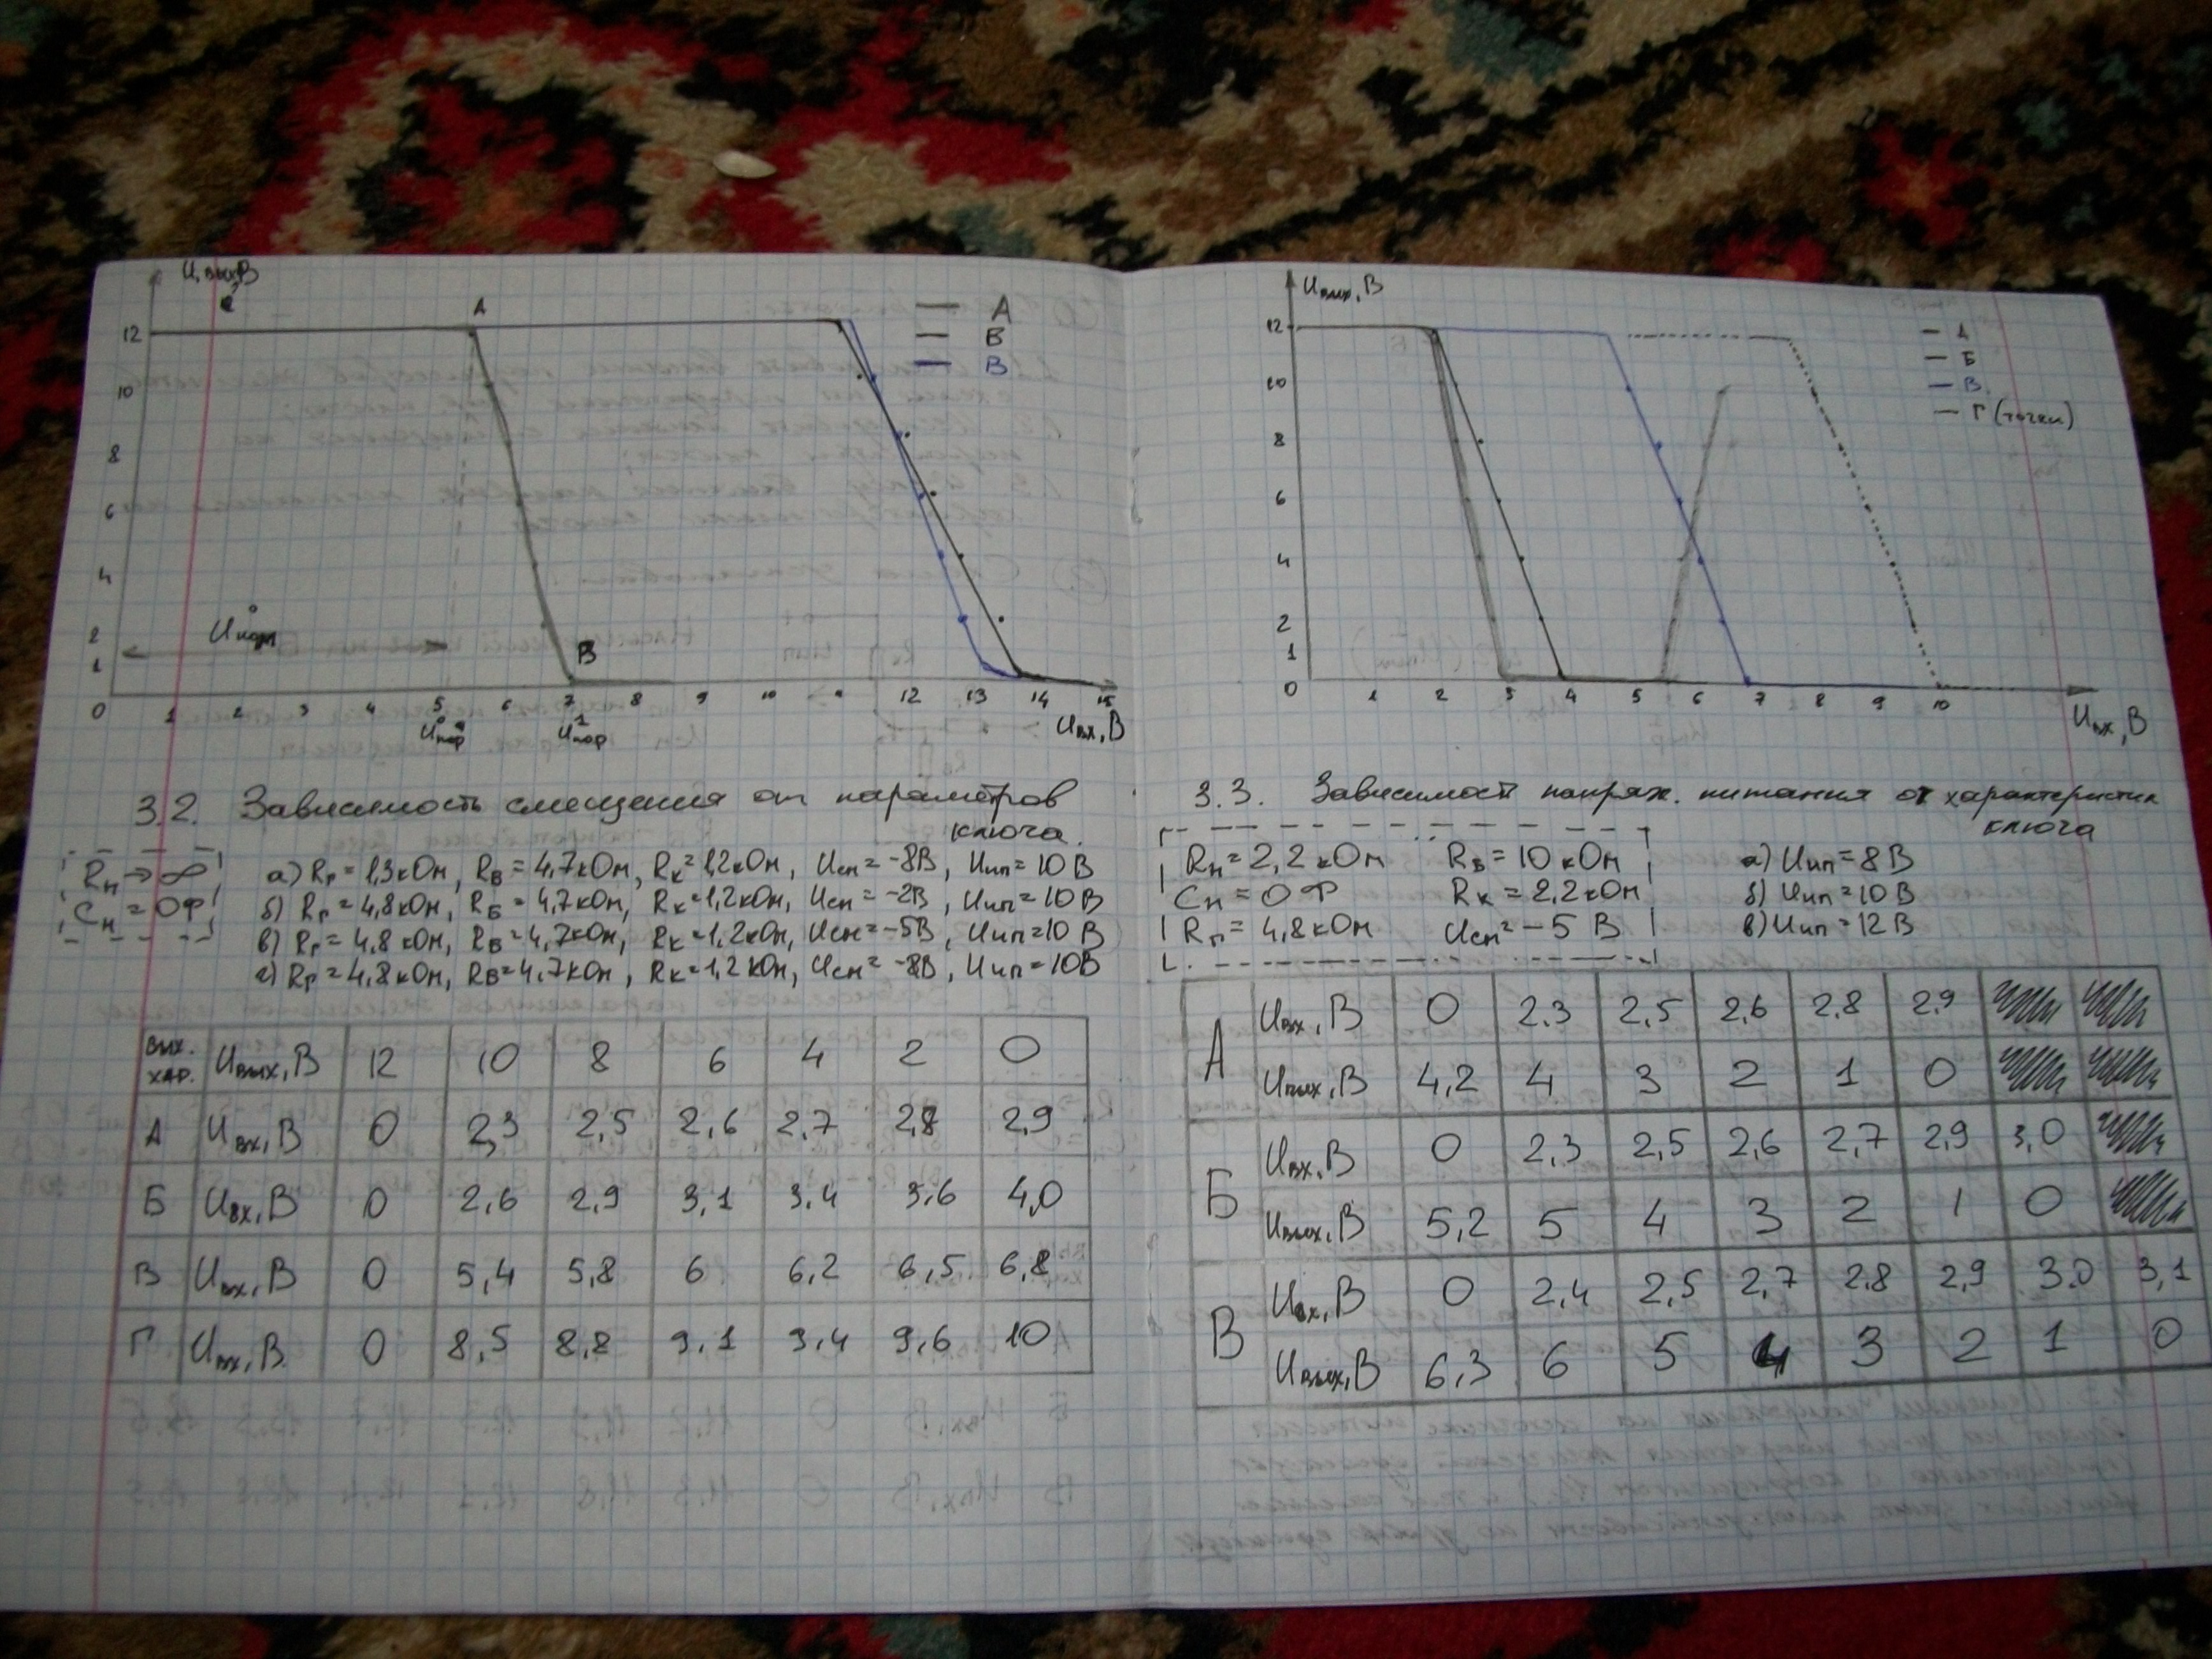 Uвых,В
A
A
В
В
12
10
8
6
4
2
1
0
U⁰пом
В
1 2 3 4 5 6 7 8 9 10 12 13 14 15
U⁰пор U¹пор Uвх,В
3.2. Зависимость смещения от параметров
ключа.
Rн→∞
Cн=0Ф
а) Rг=1,3кОм, RБ=4,7кОм, Rк=1,2кОм, Uсм=-8В, Uип=10В
б) Rг=4,8кОм, RБ=4,7кОм, Rк=1,2кОм, Uсм=-2В, Uип=10В
в) Rг=4,8кОм, RБ=4,7кОм, Rк=1,2кОм, Uсм=-5В, Uип=10В
г) Rг=4,8кОм, RБ=4,7кОм, Rк=1,2кОм, Uсм=-8В, Uип=10В
вых. хар. Uвых,В 12 10 8 6 4 2 0
А Uвх,В 0 2,3 2,5 2,6 2,7 2,8 2,9
Б Uвх,В 0 2,6 2,9 3,1 3,4 3,6 4,0
В Uвх,В 0 5,4 5,8 6 6,2 6,5 6,8
Г Uвх,В 0 8,5 8,8 9,1 9,4 9,6 10
Uвых,В
А
Б
В
Г (точки)
12
10
8
6
4
2
1
0
1 2 3 4 5 6 7 8 9 10
Uвх,В
3.3. Зависимост напряж. питания от характеристик
ключа
Rн=2,2кОм RБ=10кОм
Cн=0Ф Rк=2,2кОм
Rг=4,8кОм Uсм=-5В
а) Uип=8В
б) Uип=10В
в) Uип=12В
А Uвх,В 0 2,3 2,5 2,6 2,8 2,9
Uвых,В 4,2 4 3 2 1 0
Б Uвх,В 0 2,3 2,5 2,6 2,7 2,9 3,0
Uвых,В 5,2 5 4 3 2 1 0
В Uвх,В 0 2,4 2,5 2,7 2,8 2,9 3,0 3,1
Uвых,В 6,3 6 5 4 3 2 1 0